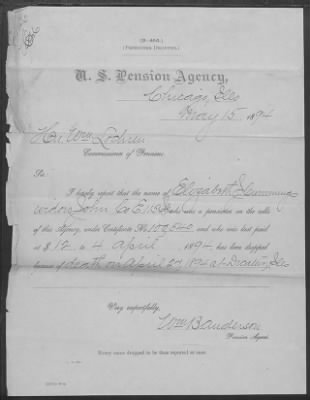 (3-446.)
(PENSIONER DROPPED.)
U. S. Pension Agency,
Chicago, Ills
May 15, 1894
Hon. Wm Lochren
Commissioner of Pensions.
Sir:
I hereby report that the name of Elizabeth
widow John Co E 115 Ills who was a pensioner on the rolls
of this Agency, under Certificate No. and who was last paid
at $12 to 4 April 1894, has been dropped
because of death on April 1894 at Decatur, Ills
Very respectfully,
Wm B Anderson
Pension Agent.
Every name dropped to be thus reported at once.